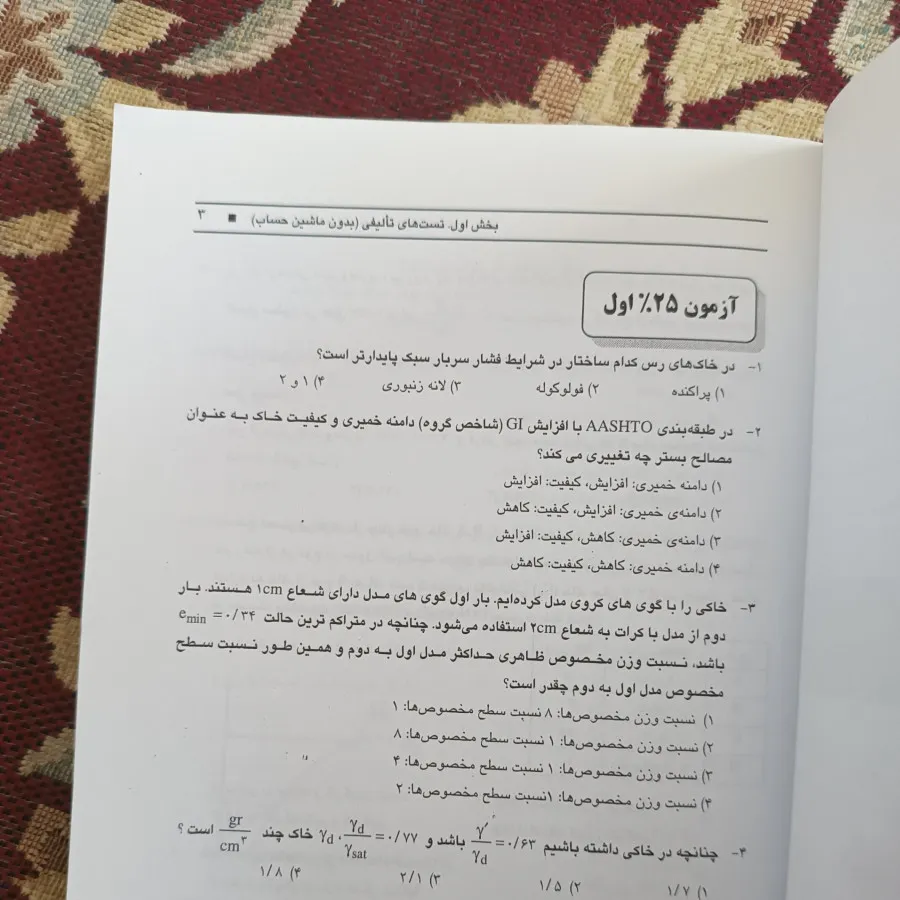 بخش اول. تست‌های تألیفی (بدون ماشین حساب) ■ ۳
آزمون ۲۵٪ اول
۱- در خاک‌های رس کدام ساختار در شرایط فشار سربار سبک پایدارتر است؟
۱) پراکنده ۲) فولوکوله ۳) لانه زنبوری ۴) ۱ و ۲
۲- در طبقه‌بندی AASHTO با افزایش GI (شاخص گروه) دامنه خمیری و کیفیت خاک به عنوان
مصالح بستر چه تغییری می کند؟
۱) دامنه خمیری: افزایش، کیفیت: افزایش
۲) دامنه‌ی خمیری: افزایش، کیفیت: کاهش
۳) دامنه‌ی خمیری: کاهش، کیفیت: افزایش
۴) دامنه خمیری: کاهش، کیفیت: کاهش
۳- خاکی را با گوی های کروی مدل کرده‌ایم. بار اول گوی های مدل دارای شعاع ۱cm هستند. بار
دوم از مدل با کرات به شعاع ۲cm استفاده می‌شود. چنانچه در متراکم ترین حالت e_min = ۰/۳۴
باشد، نسبت وزن مخصوص ظاهری حداکثر مدل اول به دوم و همین طور نسبت سطح
مخصوص مدل اول به دوم چقدر است؟
۱) نسبت وزن مخصوص‌ها: ۸ نسبت سطح مخصوص‌ها: ۱
۲) نسبت وزن مخصوص‌ها: ۱ نسبت سطح مخصوص‌ها: ۸
۳) نسبت وزن مخصوص‌ها: ۱ نسبت سطح مخصوص‌ها: ۴
۴) نسبت وزن مخصوص‌ها: ۱نسبت سطح مخصوص‌ها: ۲
۴- چنانچه در خاکی داشته باشیم γ′/γd = ۰/۶۳ باشد و γd . γd/γsat = ۰/۷۷ خاک چند gr/cm۳ است ؟
۱) ۱/۷ ۲) ۱/۵ ۳) ۲/۱ ۴) ۱/۸